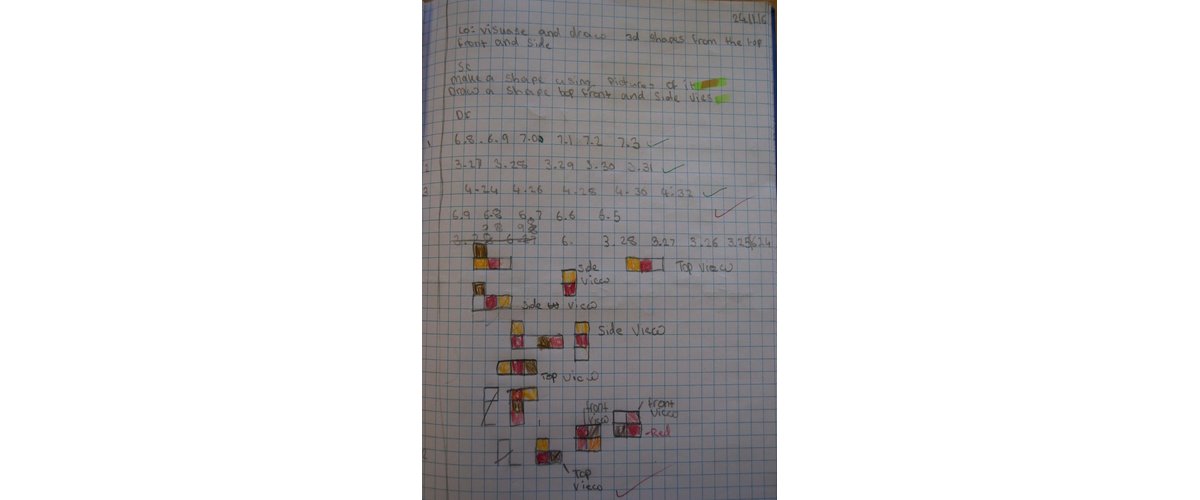 24/1/16
Lo: visuase and draw 3d shapes from the top
front and side
Sc
make a shape using pictures of it
Draw a shape top front and side vies
Dr
1 6.8 . 6.9 7.0 7.1 7.2 7.3
2 3.27 3.28 3.29 3.30 3.31
3 4.24 4.26 4.28 4.30 4.32
6.9 6.8 6.7 6.6 6.5
6. 3.28 3.27 3.26 3.25 6.24
Side
view
Top view
Side view
Side view
Top view
front
view
front
view
Red
Top
view